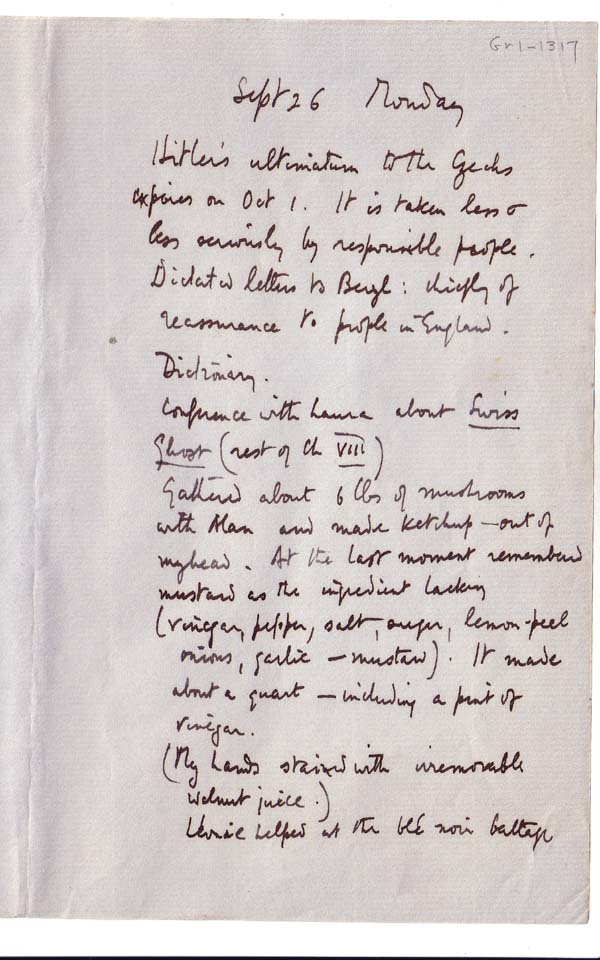 Gr1-1317
Sept 26 Monday
Hitler's ultimatum to the Czechs
expires on Oct 1. It is taken less &
less seriously by responsible people.
Dictated letters to Beryl: chiefly of
reassurance to people in England.
Dictionary.
Conference with Laura about Swiss
Ghost (rest of Ch VIII)
Gathered about 6 lbs of mushrooms
with Alan and made ketchup — out of
my head. At the last moment remembered
mustard as the ingredient lacking
(vinegar, pepper, salt, sugar, lemon-peel
onions, garlic — mustard). It made
about a quart — including a pint of
vinegar.
(My hands stained with irremovable
walnut juice.)
helped at the blé noir battage